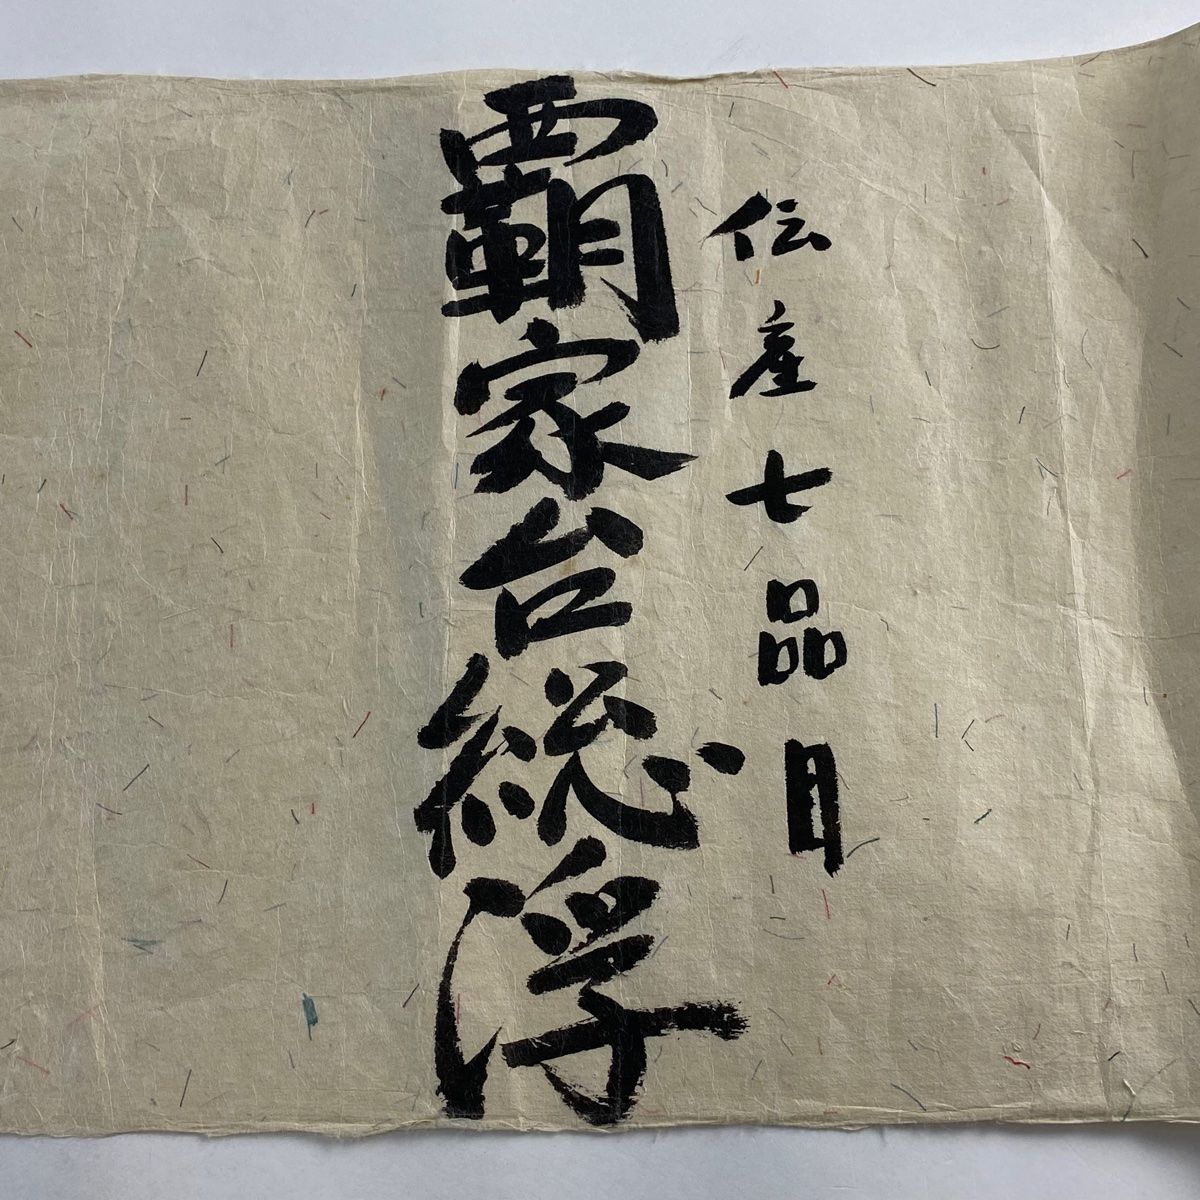 伝産七品目
覇家台総浮